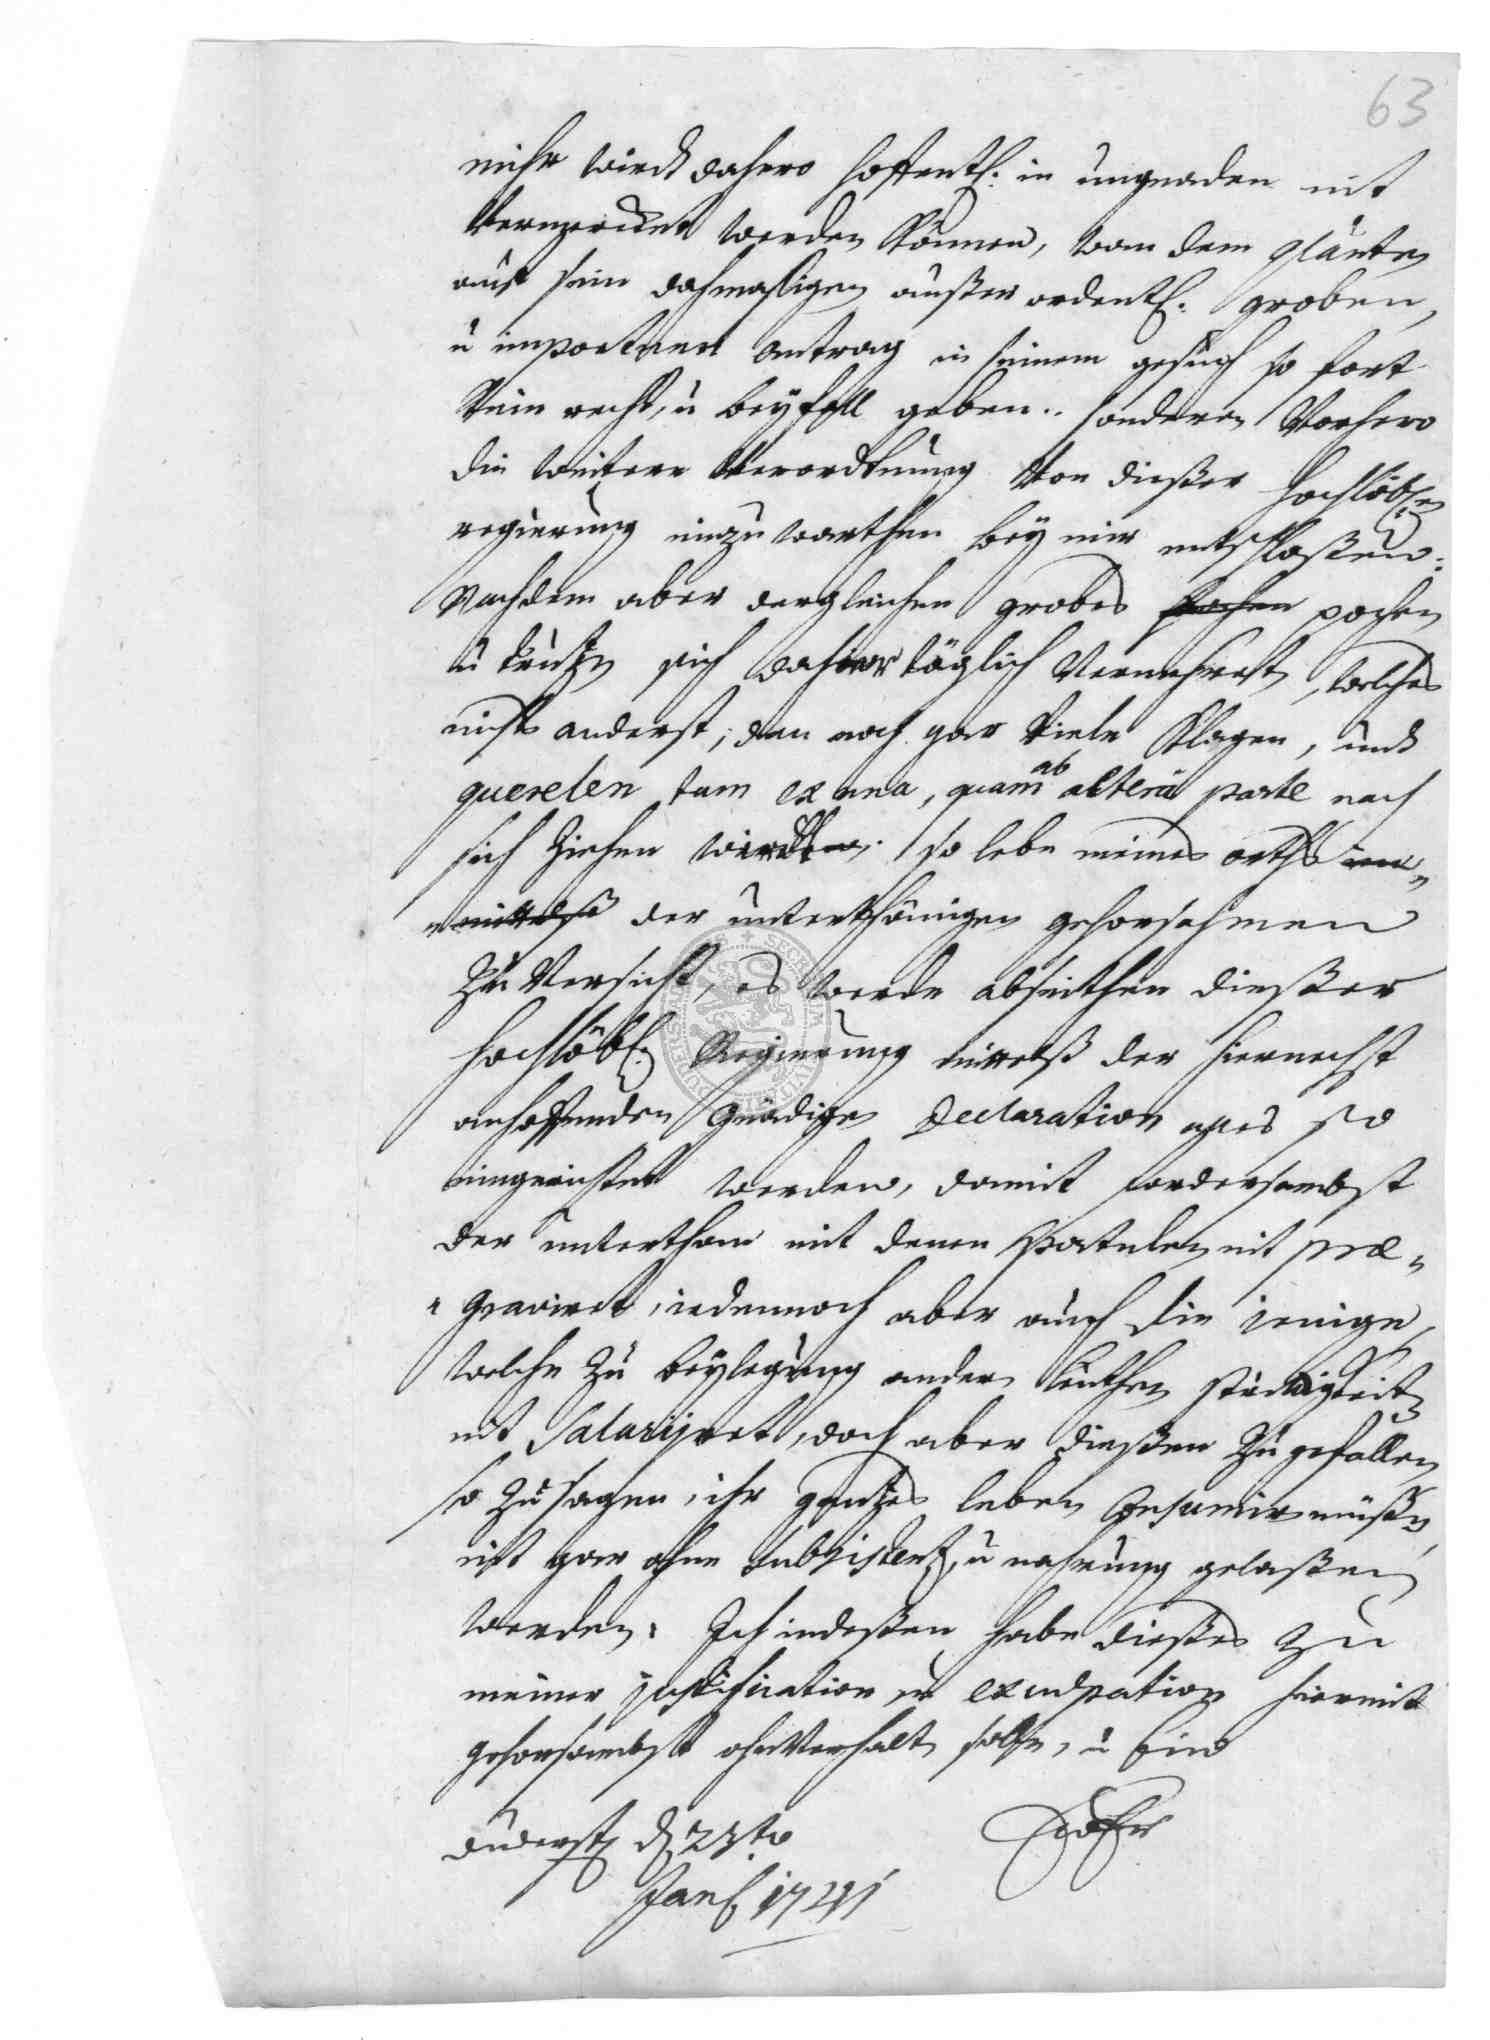 63
mihr wirdt dahero hoffentl: in ungnaden nit
vermercket werden können, wan dem
auf sein dahmahligen außer ordentl: groben,
u importunen antrag in seinem gesuch so fort
kein recht, u beyfall geben.. sonderen vorhero
die weitere verordtnung von dießer hochlöbl:en
regierung einzuwarthen bey mir entschloßen:
Nachdem aber dergleichen grobes pochen pochen
u trutzen sich dahier täglich vermehret, welches
nichts anderst, dan noch gar viele klagen, undt
querelen tam ex una, quam ab altera parte nach
sich ziehen wirdt. so lebe meines orths
mittelß der unterthänigen gehorsahmen
Zu versicht, es werde abseithen dießer
hochlöbl: Regierung mittelß der hiernechst
anhoffenden gnädigen Declaration alles so
eingerichtet werden, damit fordersambst
der unterthan mit denen Sportulen nit præ-
graviret, iedennoch aber auch die ienige,
welche zu beylegung ander leuthen strittigkeiten
nit Salarijret, doch aber dießen zu gefallen,
so zu sagen, ihr gantzes leben müßen,
nit gar ohne subsistentz, u nahrung gelaßen
werden: Ich indeßen habe dießes zu
meiner justification u exculpation hiermit
gehorsambst ohnverhalten sollen, u bin
duderst d 23to
Jan 1741